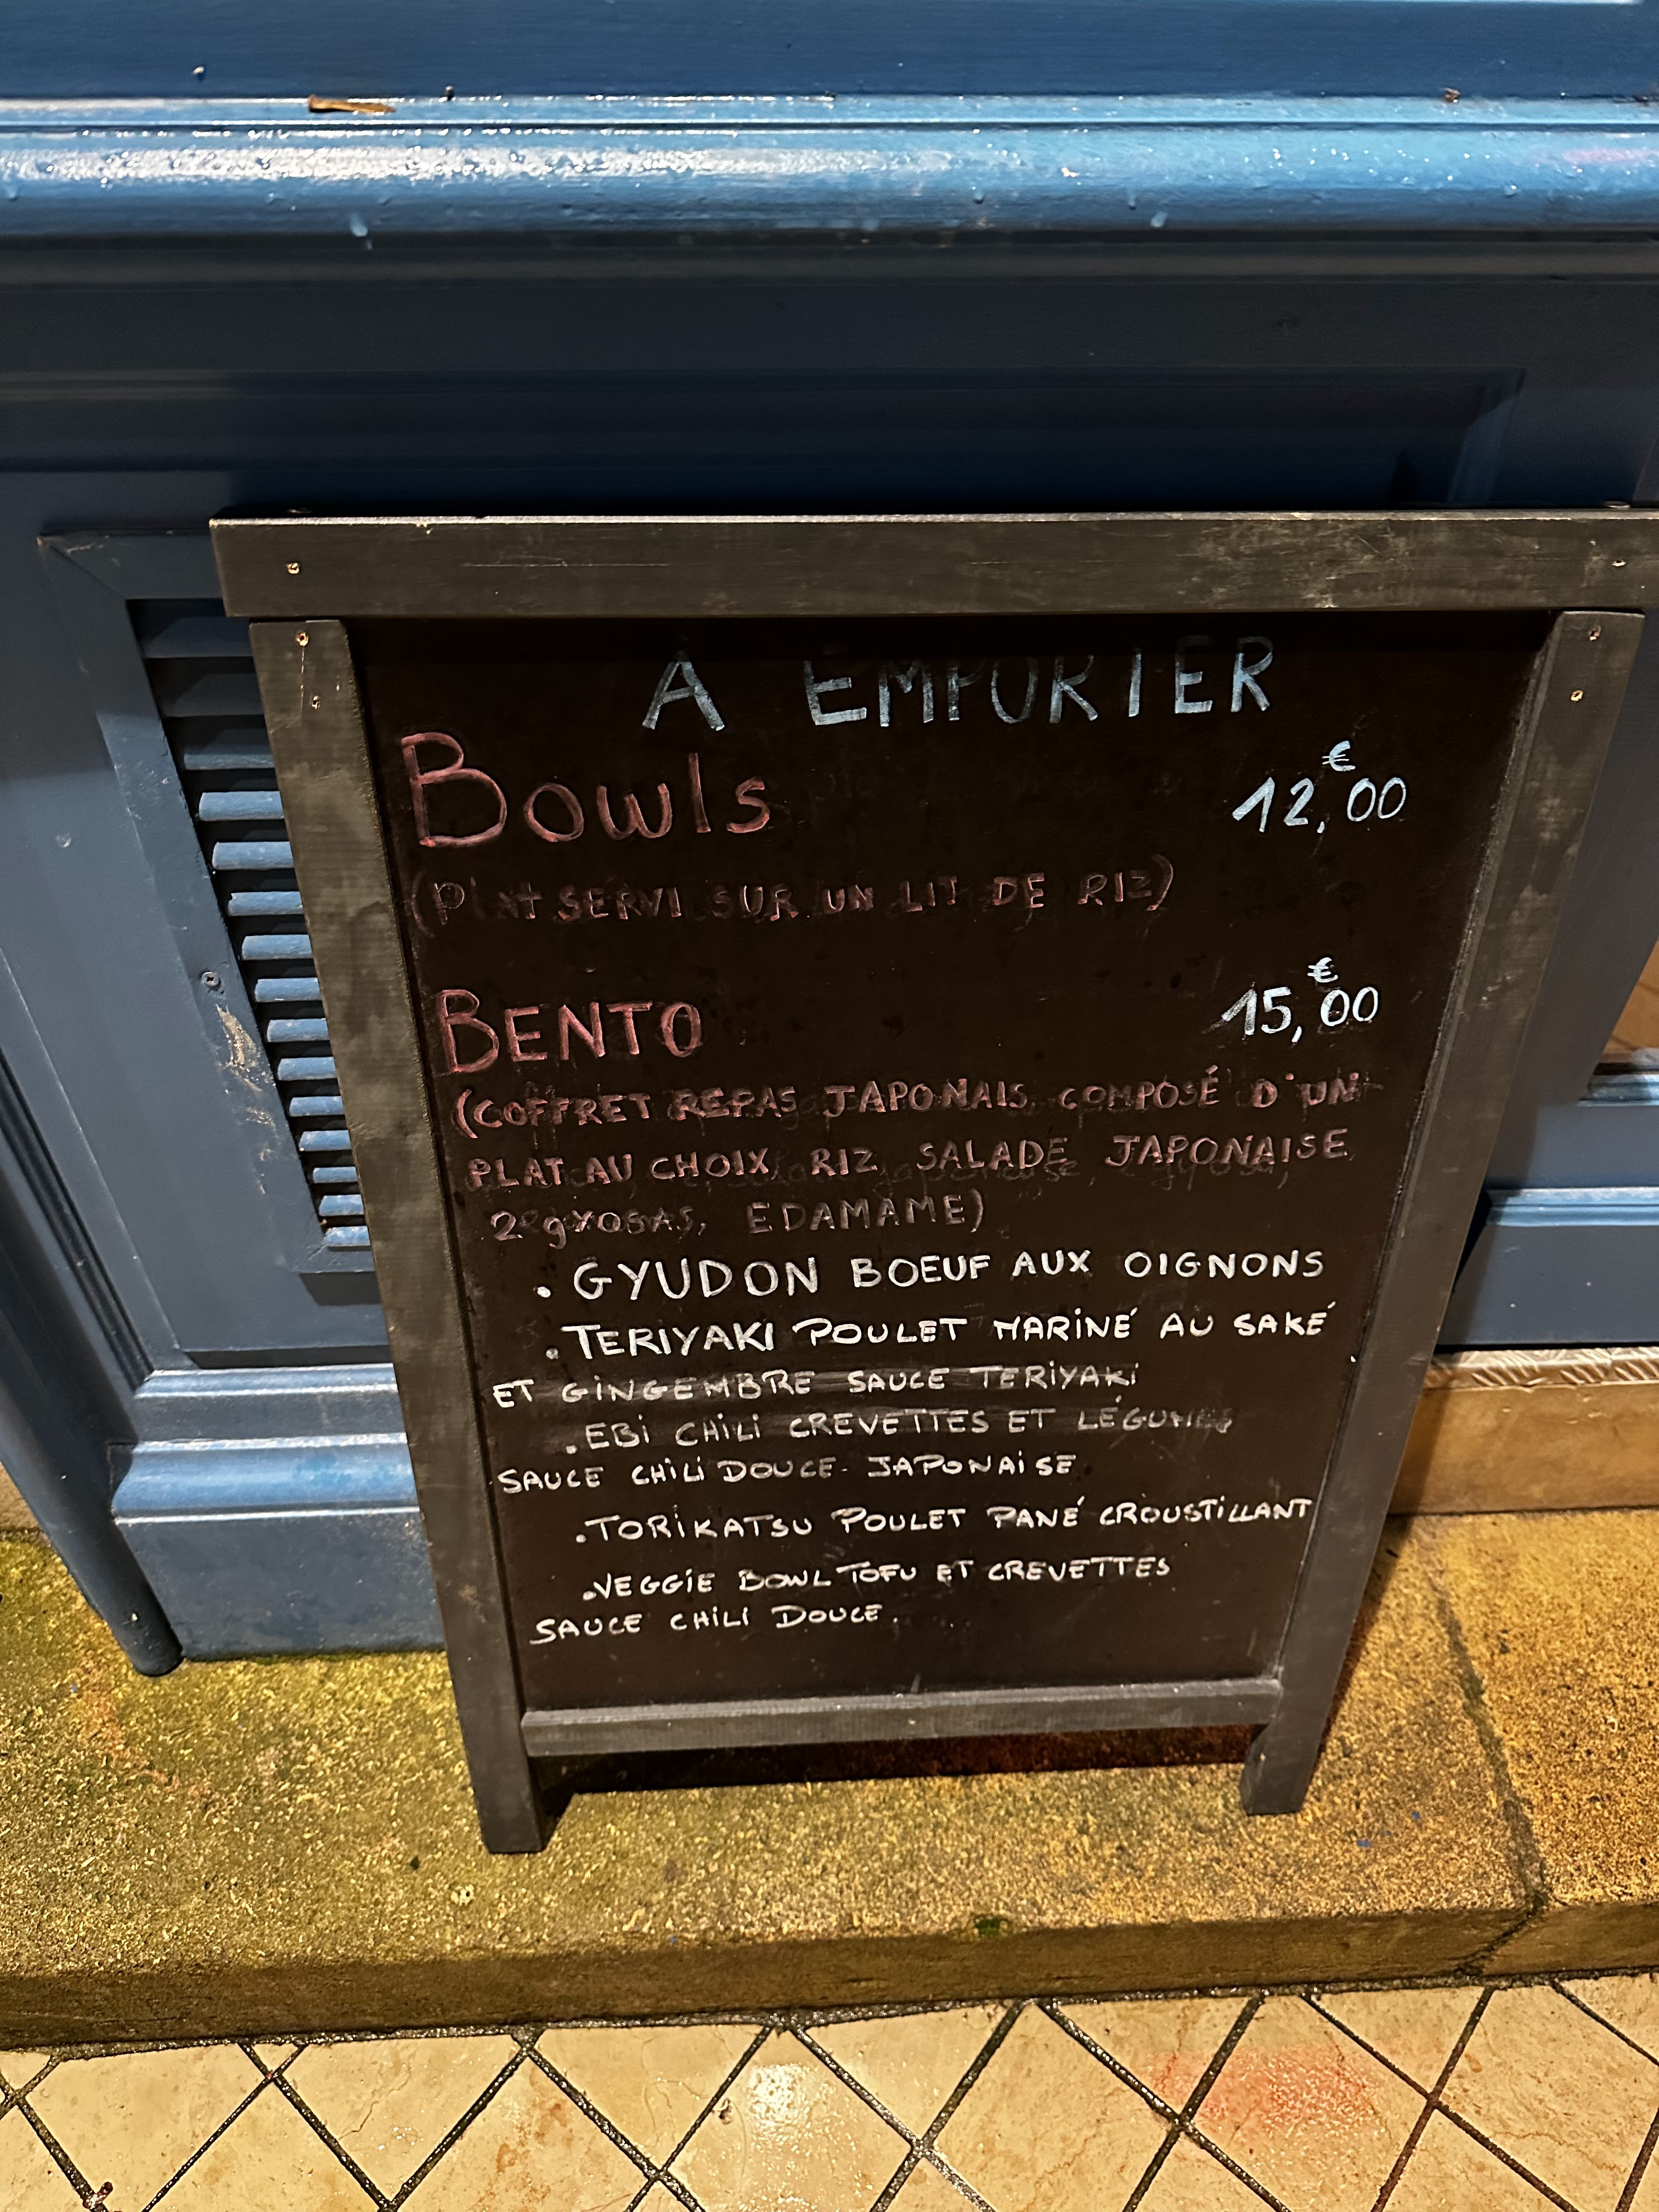 À EMPORTER
Bowls 12,00 €
(PLAT SERVI SUR UN LIT DE RIZ)
BENTO 15,00 €
(COFFRET REPAS JAPONAIS COMPOSÉ D'UN
PLAT AU CHOIX, RIZ, SALADE JAPONAISE,
2 gYOSAS, EDAMAME)
. GYUDON BOEUF AUX OIGNONS
. TERIYAKI POULET MARINÉ AU SAKÉ
ET GINGEMBRE SAUCE TERIYAKI
. EBI CHILI CREVETTES ET LÉGUMES
SAUCE CHILI DOUCE JAPONAISE
. TORIKATSU POULET PANÉ CROUSTILLANT
. VEGGIE BOWL TOFU ET CREVETTES
SAUCE CHILI DOUCE.